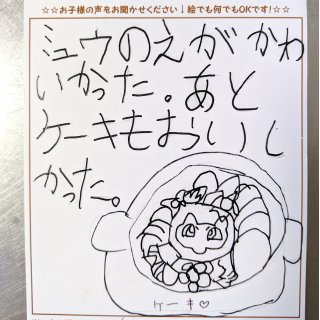 ☆☆お子様の声をお聞かせください↓絵でも何でもOKです!☆☆
ミュウのえがかわ
いかった。あと
ケーキもおいし
かった。
ケーキ♡